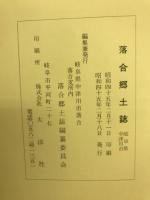 落合郷土誌
岐阜県
中津川市
昭和四十五年二月十一日 印刷
昭和四十五年二月十八日 発行
編集兼発行
岐阜県中津川市落合
落合支所内
落合郷土誌編纂委員会
岐阜市平河町二十七
印刷所
株式会社 太洋社